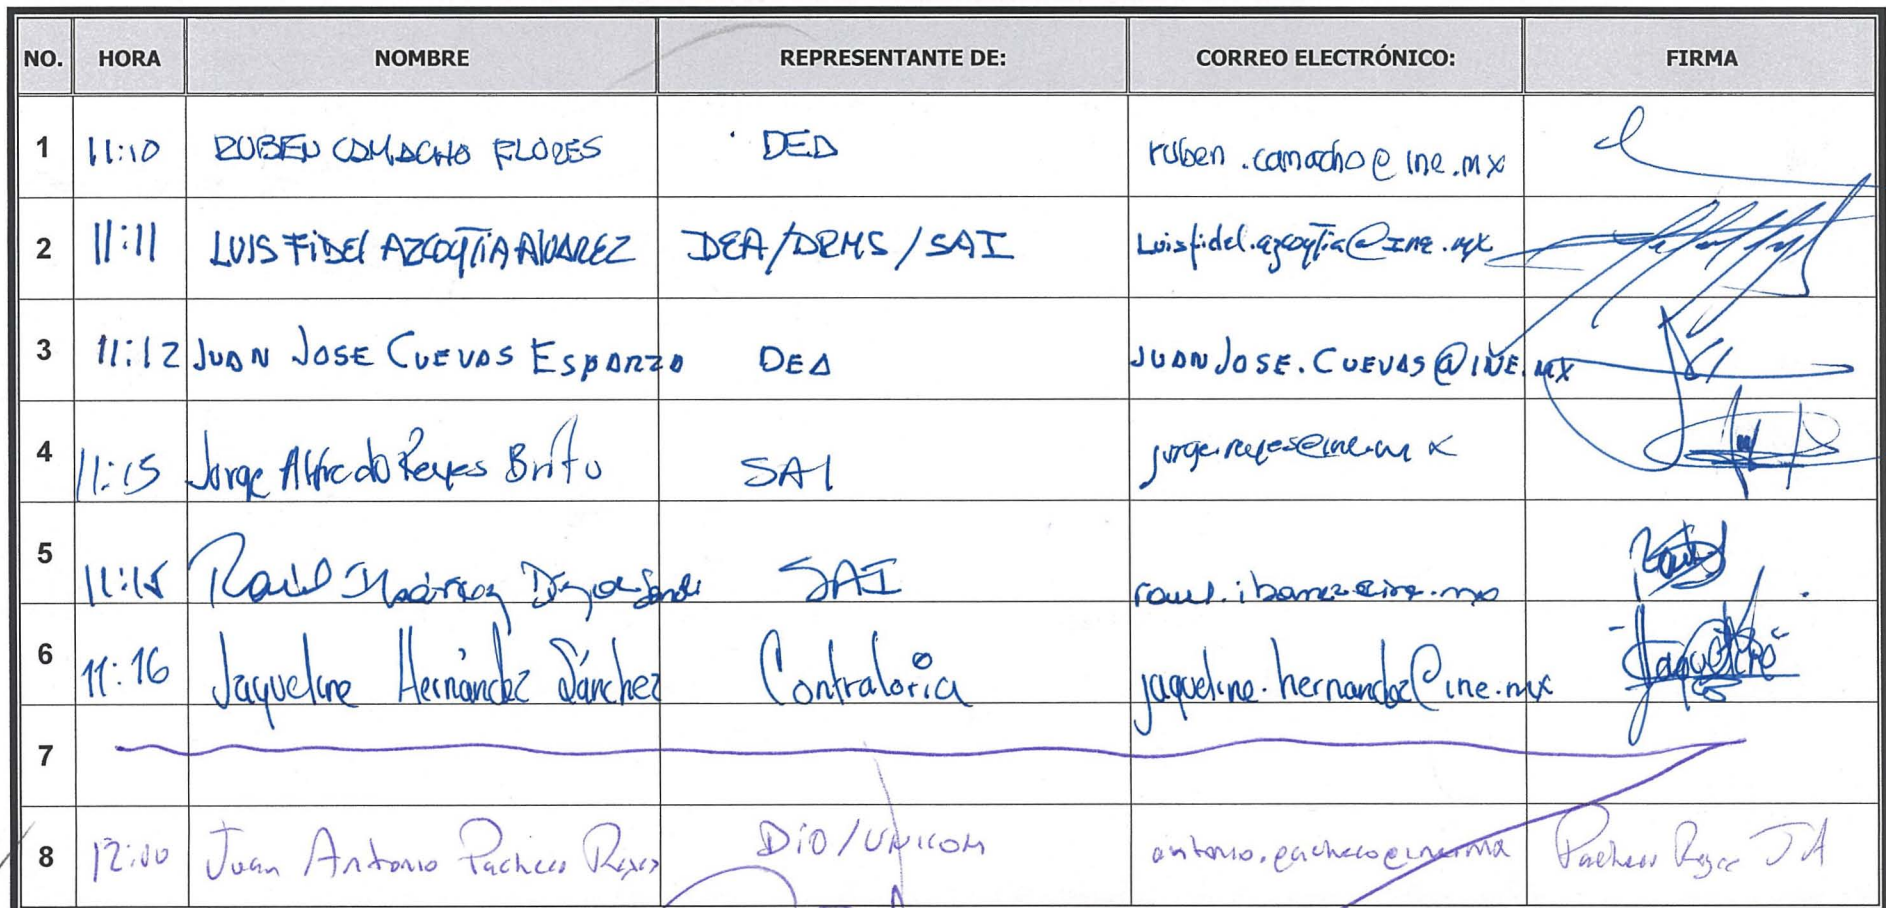 NO. HORA NOMBRE REPRESENTANTE DE: CORREO ELECTRÓNICO: FIRMA
1 11:10 RUBEN CAMACHO FLORES DEA ruben.camacho@ine.mx
2 11:11 LUIS FIDEL AZCOYTIA ALVAREZ DEA/DRMS/SAI Luisfidel.azcoytia@ine.mx
3 11:12 JUAN JOSE CUEVAS ESPARZA DEA JUANJOSE.CUEVAS@INE.MX
4 11:15 Jorge Alfredo Reyes Brito SAI jorge.reyes@ine.mx
5 11:15 Raul SAI raul.ibanez@ine.mx
6 11:16 Jaqueline Hernández Sánchez Contraloria jaqueline.hernandez@ine.mx Jaqueline
7
8 12:00 Juan Antonio Pacheco Reyes DIO/UNICOM antonio.pacheco@ine.mx Pacheco Reyes JA